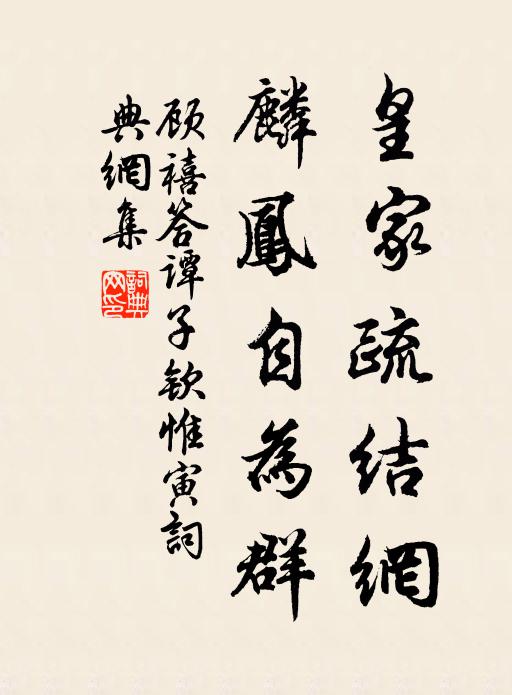 皇家疏结網
麟鳳自為群
顾禧答谭子欽惟寅詞
典網集
詞典網印